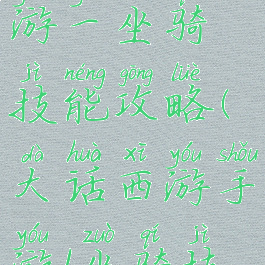 游一坐骑
jì néng gōng lüè
技能攻略(
dà huà xī yóu shǒu
大话西游手
yóu zuò qí jì
游)坐骑技